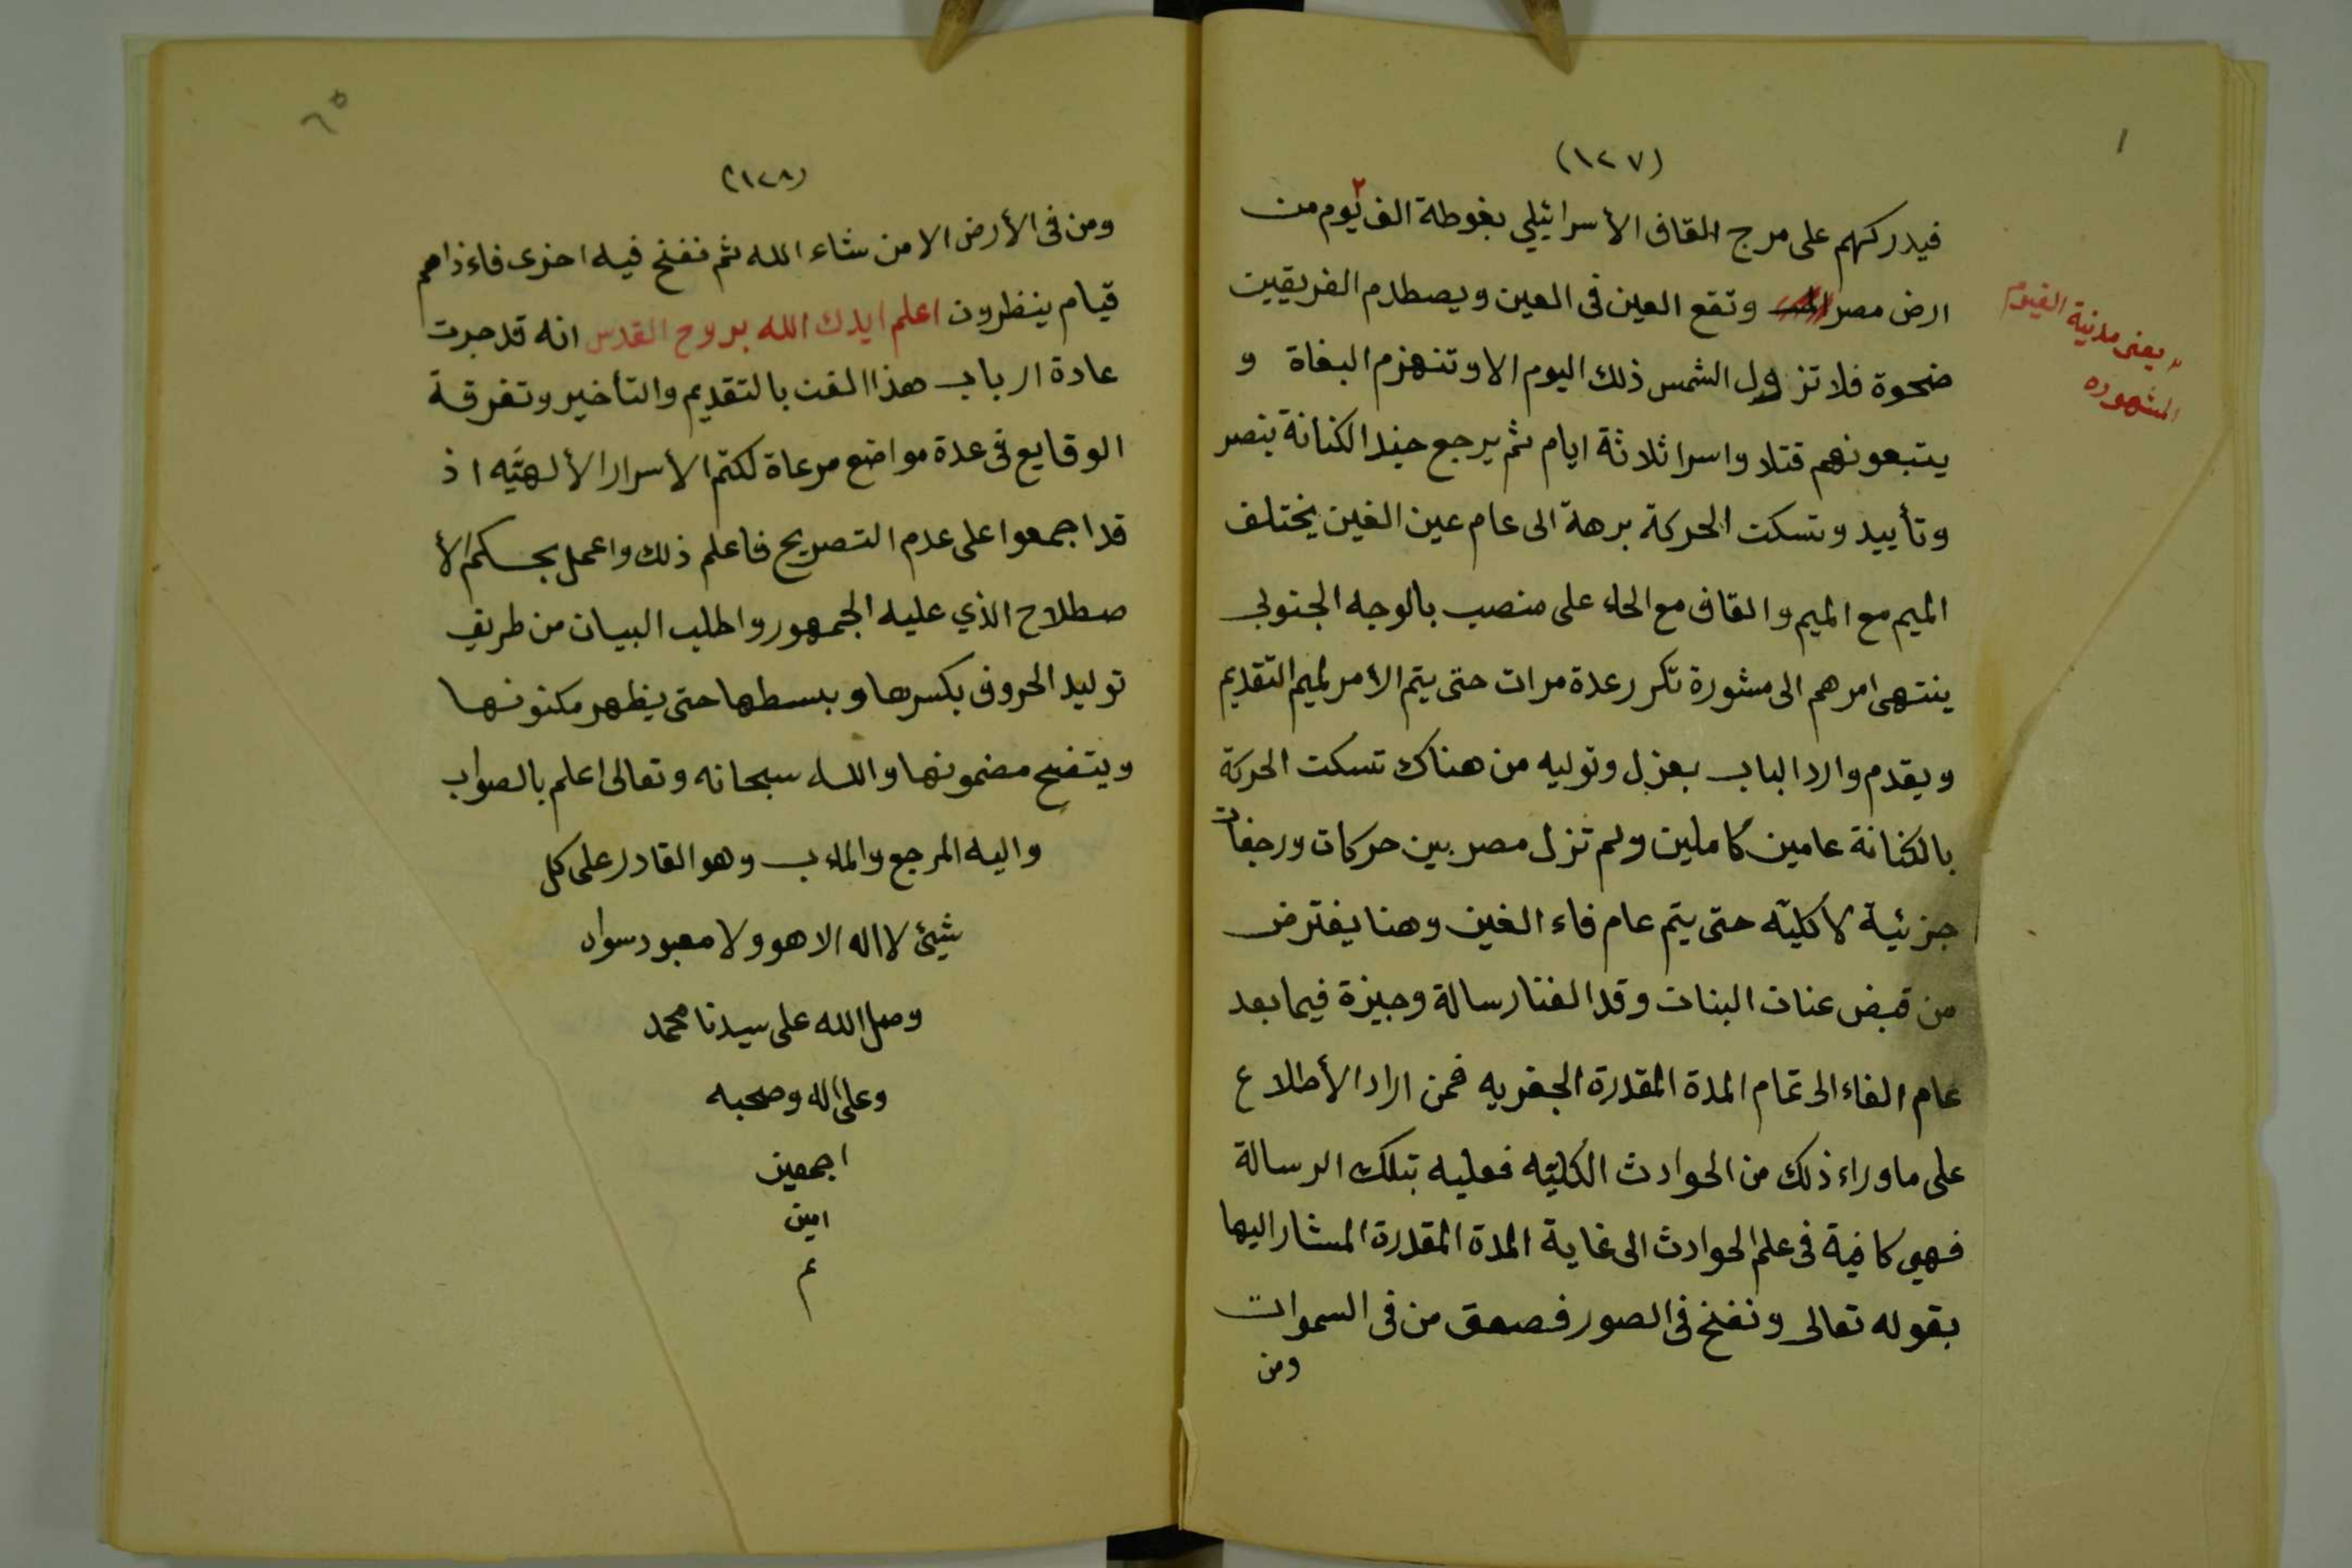 (١٢٧)
فيدركهم على مرج القاف الأسرائيلي بغوطة الف يوم من
ارض مصر وتقع العين فى العين ويصطدم الفريقين
ضحوة فلا تزول الشمس ذلك اليوم الا وتنهزم البغاة و
يتبعونهم قتلا واسرا ثلاثة ايام ثم يرجع جند الكنانة بنصر
وتأييد وتسكن الحركة برهة الى عام عين الغين يختلف
الميم مع الميم والقاف مع الحاء على منصب بالوجه الجنوبى
ينتهى امرهم الى مشورة تكرر عدة مرات حتى يتم الأمر لميم التقديم
ويقدم وارد الباب بعزل وتوليه من هناك تسكن الحركة
بالكنانة عامين كاملين ولم تزل مصر بين حركات ورجفات
جزئية لا كليّه حتى يتم عام فاء الغين وهنا يفترض
من قبض عنان البنات وقد الفنا رسالة وجيزة فيما بعد
عام الفاء الى تمام المدة المقدرة الجفريه فمن اراد الأطلاع
على ما وراء ذلك من الحوادث الكليّه فعليه بتلك الرسالة
فهي كافية فى علم الحوادث الى غاية المدة المقدرة المشار اليها
بقوله تعالى ونفخ فى الصور فصعق من فى السموات
ومن
٢
٢ يعنى مدنية الفيوم
المشهوره
١
٦٥
(١٢٨)
ومن فى الأرض الا من شاء الله ثم نفخ فيه اخرى فاءذا هم
قيام ينظرون اعلم ايدك الله بروح القدس انه قد جرت
عادة ارباب هذا الفن بالتقديم والتأخير وتفرقة
الوقايع فى عدة مواضع مرعاة لكتم الأسرار الألهيّه اذ
قد اجمعوا على عدم التصريح فاعلم ذلك واعمل بحكم الأ
صطلاح الذي عليه الجمهور واطلب البيان من طريق
توليد الحروف بكسرها وبسطها حتى يظهر مكنونها
ويتضح مضمونها والله سبحانه وتعالى اعلم بالصواب
واليه المرجع والماءب وهو القادر على كل
شيئ لا اله الا هو ولا معبود سواه
وصل الله على سيدنا محمد
وعلى اله وصحبه
اجمعين
امين
م